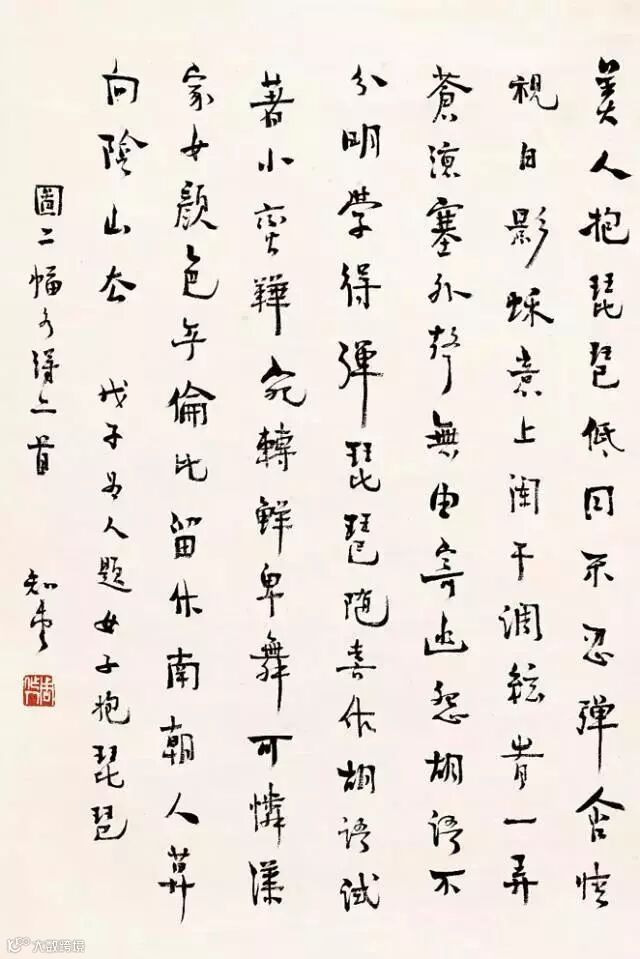 美人抱琵琶低回不忍彈含
視自影上闌干調絃一弄
蒼涼塞外聲無由寄幽怨胡語不
分明學得彈琵琶隨喜作胡語試
著小蠻鞾宛轉鮮卑舞可憐漢
家女顏色倫比留作南朝人莫
向陰山去 戊子為人題女子抱琵琶
圖二幅各得一首 知堂
大数跨境